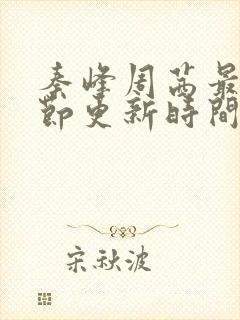 秦峰周茜最
節更新時間
宋秋波